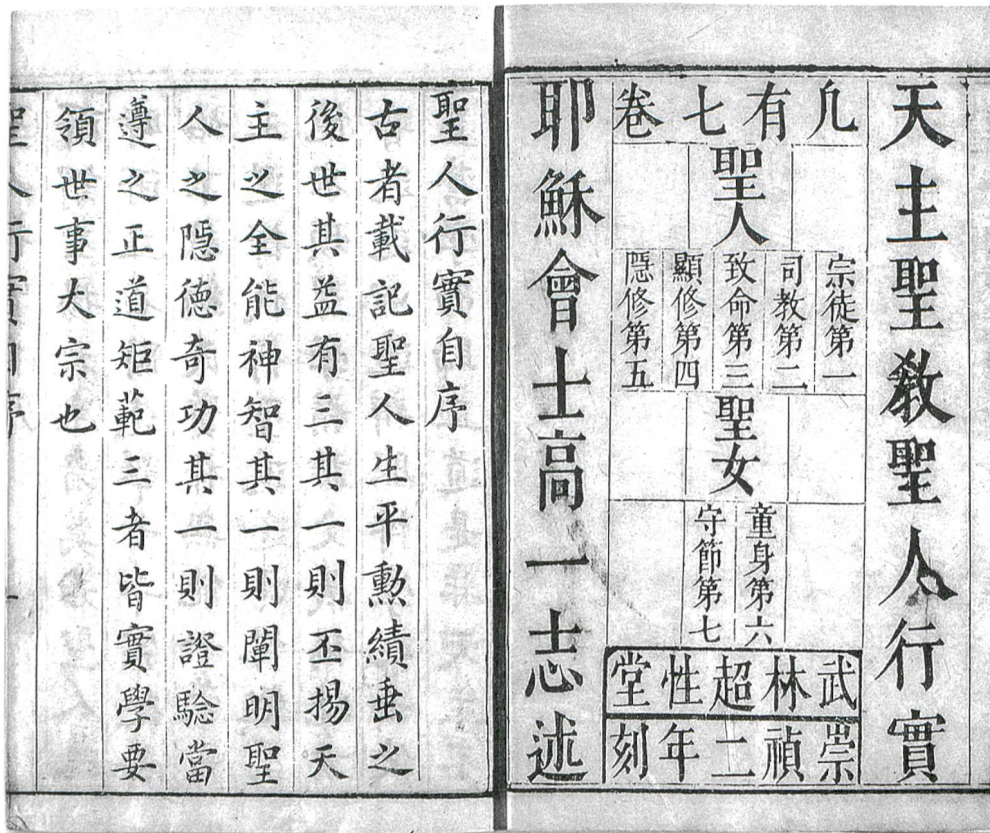 天主聖教聖人行實
凢有七卷
聖人
宗徒第一
司教第二
致命第三
顯修第四
隱修第五
聖女
童身第六
守節第七
武林超性堂
崇禎二年刻
耶穌會士高一志述
聖人行實自序
古者載記聖人生平勳績垂之
後世其益有三其一則丕揚天
主之全能神智其一則闡明聖
人之隱德奇功其一則證驗當
遵之正道矩範三者皆實學要
領世事大宗也
聖人行實自序
一